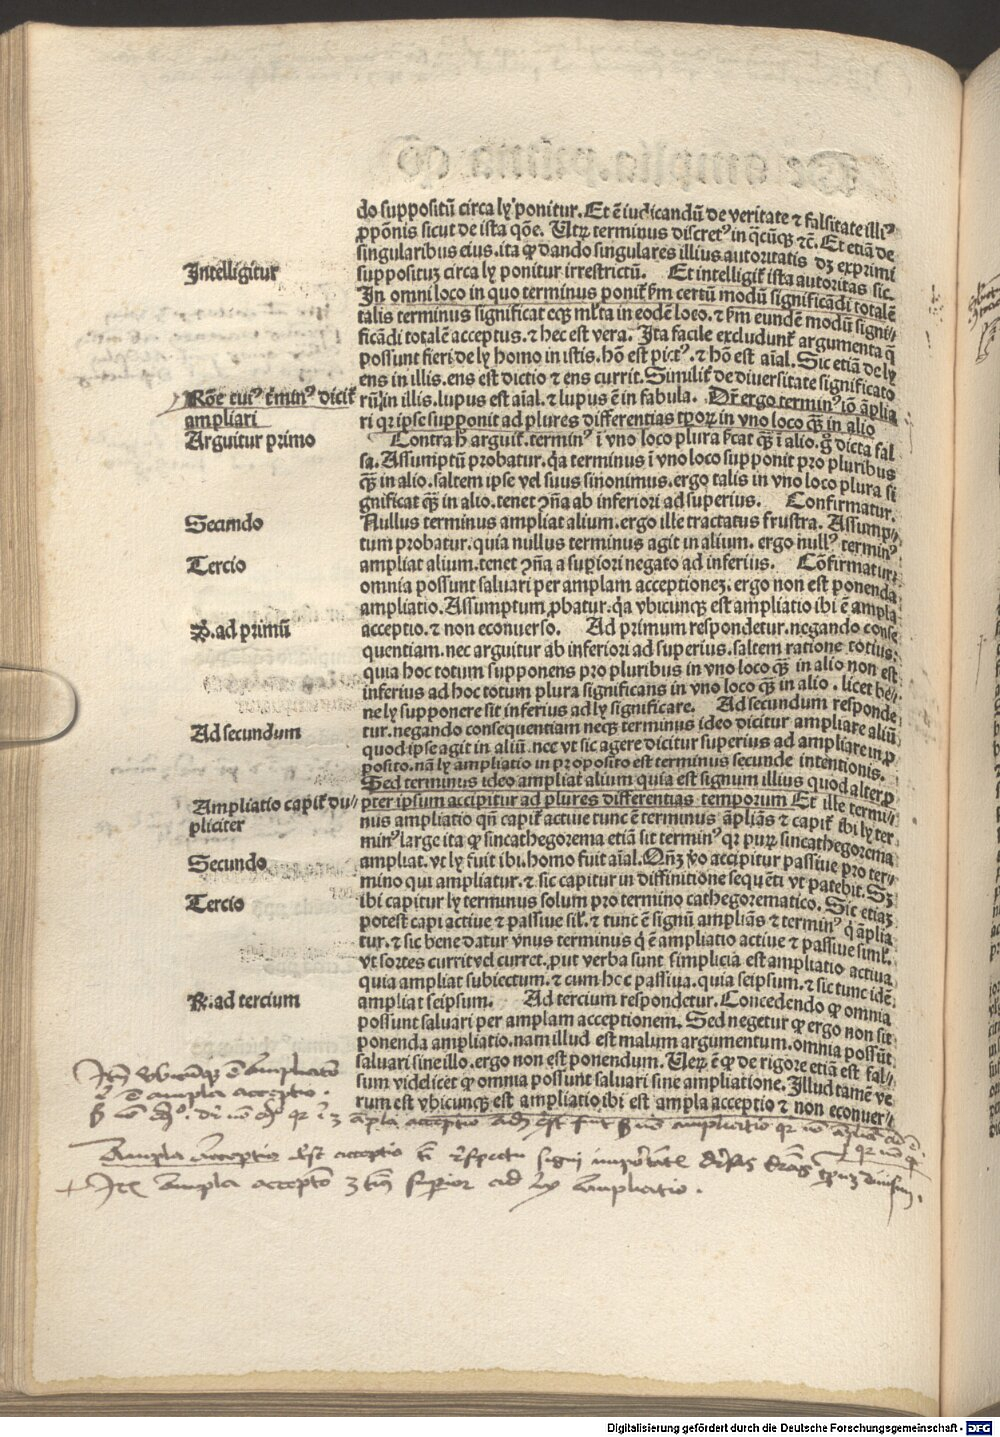 do suppositū circa lyꝰponitur. Et ē iudicandū de veritate ⁊ falsitate illiꝰ
ꝓpōnis sicut de ista qōe. Utꝝ terminus discretꝰ in q̄cūqꝫ ⁊c̄. Et etiā de
singularibus eius. ita ꝙ dando singulares illius autoritatis dꝫ exprimi
Intelligitur
supposituꝫ circa ly ponitur irrestrictū. Et intelligiť ista autoritas sic.
In omni loco in quo terminus poniť ẜm certū modū significādi totalē
talis terminus significat eqꝫ ml̓ta in eodē loco. ⁊ ẜm eundē modū signi-
ficādi totalē acceptus. ⁊ hec est vera. Ita facile excludunť argumenta q̄
possunt fieri de ly homo in istis. hō est pictꝰ. ⁊ hō est aīal. Sic etiā de ly
ens in illis. ens est dictio ⁊ ens currit. Similiť de diuersitate significato
Rōe cuiꝰ t̄minꝰ diciť
ampliari
rū in illis. lupus est aīal. ⁊ lupus ē in fabula. Dr̄ ergo terminꝰ iō āplia
ri qꝛ ipse supponit ad plures differentias tꝑoꝝ in vno loco qꝫ̄ in alio
Arguitur primo
Contra h̄ arguiť. terminꝰ ī vno loco plura ẜcat qꝫ̄ ī alio. g̊ dicta fal
sa. Assumptū probatur. q̄a terminus ī vno loco supponit pro pluribus
qꝫ̄ in alio. saltem ipse vel suus sinonimus. ergo talis in vno loco plura si
gnificat qꝫ̄ in alio. tenet ꝯn̄a ab inferiori ad superius. Confirmatur.
Secundo
Nullus terminus ampliat alium. ergo ille tractatus frustra. Assump-
tum probatur. quia nullus terminus agit in alium. ergo nullꝰ terminꝰ
Tercio
ampliat alium. tenet ꝯn̄a a suꝑiori negato ad inferius. Cōfirmatur.
omnia possunt saluari per amplam acceptioneꝫ. ergo non est ponenda
ampliatio. Assumptum ꝓbatur. q̄a vbicunqꝫ est ampliatio ibi ē ampla
R̷. ad primū
acceptio. ⁊ non econuerso. Ad primum respondetur. negando conse
quentiam. nec arguitur ab inferiori ad superius. saltem ratione totius.
quia hoc totum supponens pro pluribus in vno loco qꝫ̄ in alio non est
inferius ad hoc totum plura significans in vno loco qꝫ̄ in alio. licet be-
ne ly supponere sit inferius ad ly significare. Ad secundum responde
Ad secundum
tur. negando consequentiam neqꝫ terminus ideo dicitur ampliare aliū
quod ipse agit in aliū. nec vt sic agere dicitur superius ad ampliare in ꝓ
posito. nā ly ampliatio in proposito est terminus secunde intentionis.
Sed terminus ideo ampliat alium quia est signum illius quod alter ꝓ
Ampliatio capiť du-
pliciter
pter ipsum accipitur ad plures differentias temporum Et ille termi-
nus ampliatio qn̄ capiť actiue tunc ē terminus āpliās ⁊ capiť ibi ly ter
minꝰ large ita ꝙ sincathegorema etiā sit terminꝰ qꝛ puꝝ sincathegorema
Secundo
ampliat. vt ly fuit ibi. homo fuit aīal. Qn̄qꝫ v̊o accipitur passiue pro ter-
mino qui ampliatur. ⁊ sic capitur in diffinitione sequēti vt patebit. Sꝫ
Tercio
ibi capitur ly terminus solum pro termino cathegorematico. Sic etiaꝫ
potest capi actiue ⁊ passiue sil̓. ⁊ tunc ē signū ampliās ⁊ terminꝰ q̇ āplia
tur. ⁊ sic bene datur vnus terminus q̇ ē ampliatio actiue ⁊ passiue siml̓.
vt sortes currit vel curret. put verba sunt simplicia est ampliatio actiua.
quia ampliat subiectum. ⁊ cum hc ē passiua. quia seipsum. ⁊ sic tunc idē
R̷. ad tercium
ampliat seipsum. Ad tercium respondetur. Concedendo ꝙ omnia
possunt saluari per amplam acceptionem. Sed negetur ꝙ ergo non sit
ponenda ampliatio. nam illud est malum argumentum. omnia possūt
saluari sine illo. ergo non est ponendum. Ueꝝ ē ꝙ de rigore etiā est fal-
sum viddicet ꝙ omnia possunt saluari sine ampliatione. Illud tamē ve
rum est vbicunqꝫ est ampliatio ibi est ampla acceptio ⁊ non econuer-
vbicūqꝫ ē ampliatio
ē ampla acceptio.
ampla acceptio
Ampla acceptio est acceptio
ampla acceptio superior ad ly ampliatio.
Digitalisierung gefördert durch die Deutsche Forschungsgemeinschaft - DFG